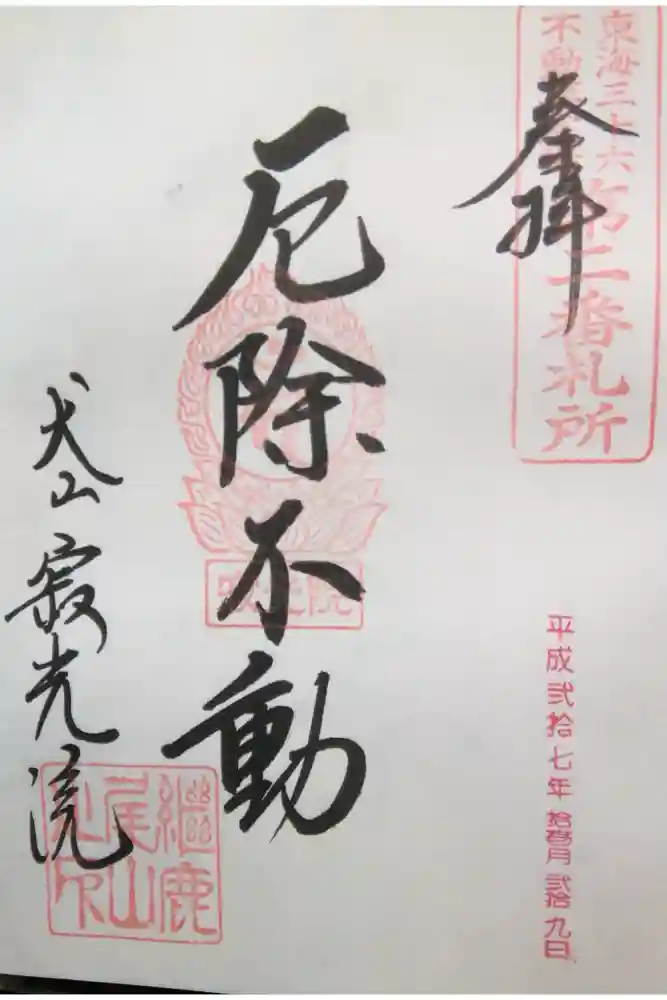 東海三十六
不動尊
第二番札所
奉拝
厄除不動
寂光院
犬山寂光院
平成弐拾七年拾壱月弐拾九日
継鹿
尾山